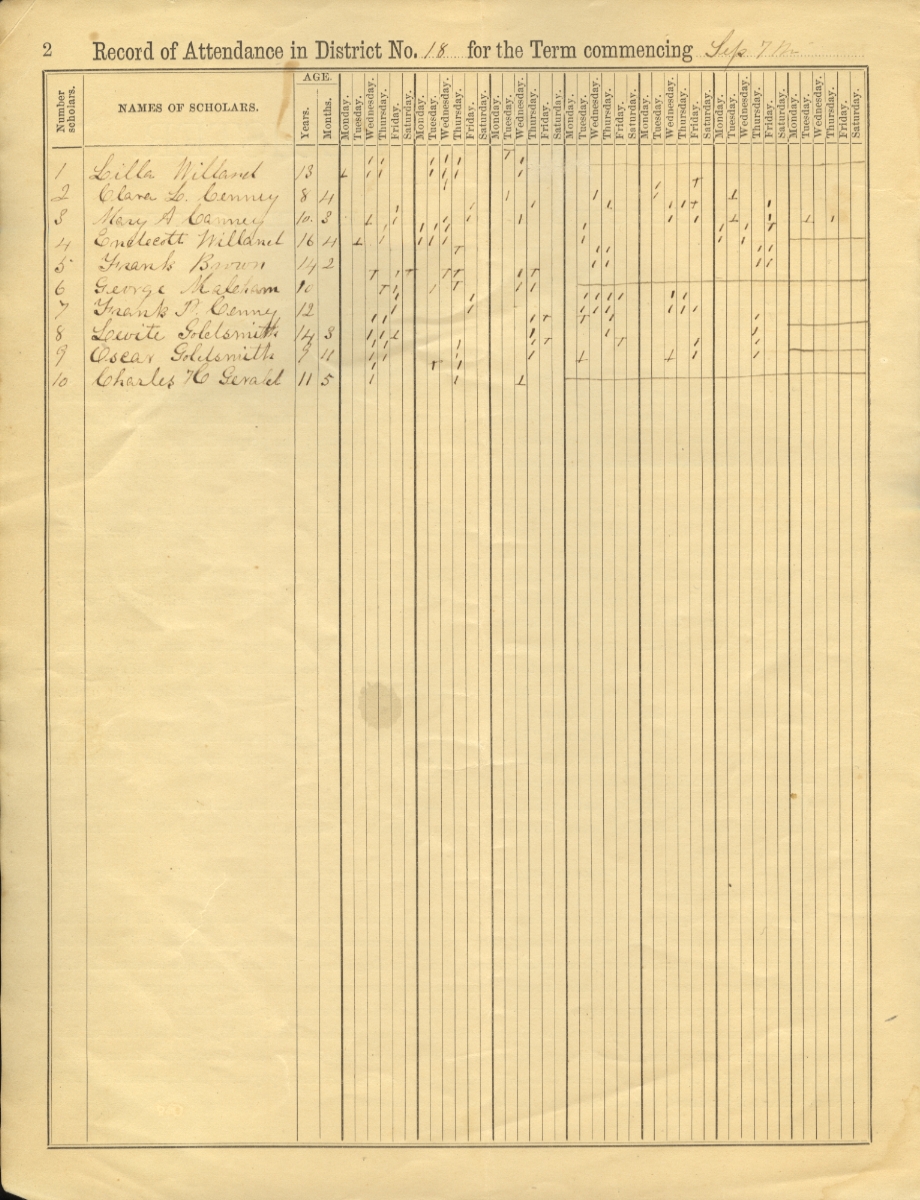 2 Record of Attendance in District No. 18 for the Term commencing Sep 7
Number scholars. NAMES OF SCHOLARS. AGE. Years. Months. Monday. Tuesday. Wednesday. Thursday. Friday. Saturday. Monday. Tuesday. Wednesday. Thursday. Friday. Saturday. Monday. Tuesday. Wednesday. Thursday. Friday. Saturday. Monday. Tuesday. Wednesday. Thursday. Friday. Saturday. Monday. Tuesday. Wednesday. Thursday. Friday. Saturday. Monday. Tuesday. Wednesday. Thursday. Friday. Saturday. Monday. Tuesday. Wednesday. Thursday. Friday. Saturday.
1 Lilla Willand 13
2 Clara L. Cenney 8 4
3 Mary A Canney 10 3
4 Endecott Willand 16 4
5 Frank Brown 14 2
6 George Maleham 10
7 Frank P. Cenny 12
8 Lewite Goldsmith 14 3
9 Oscar Goldsmith 9 11
10 Charles H Gerald 11 5